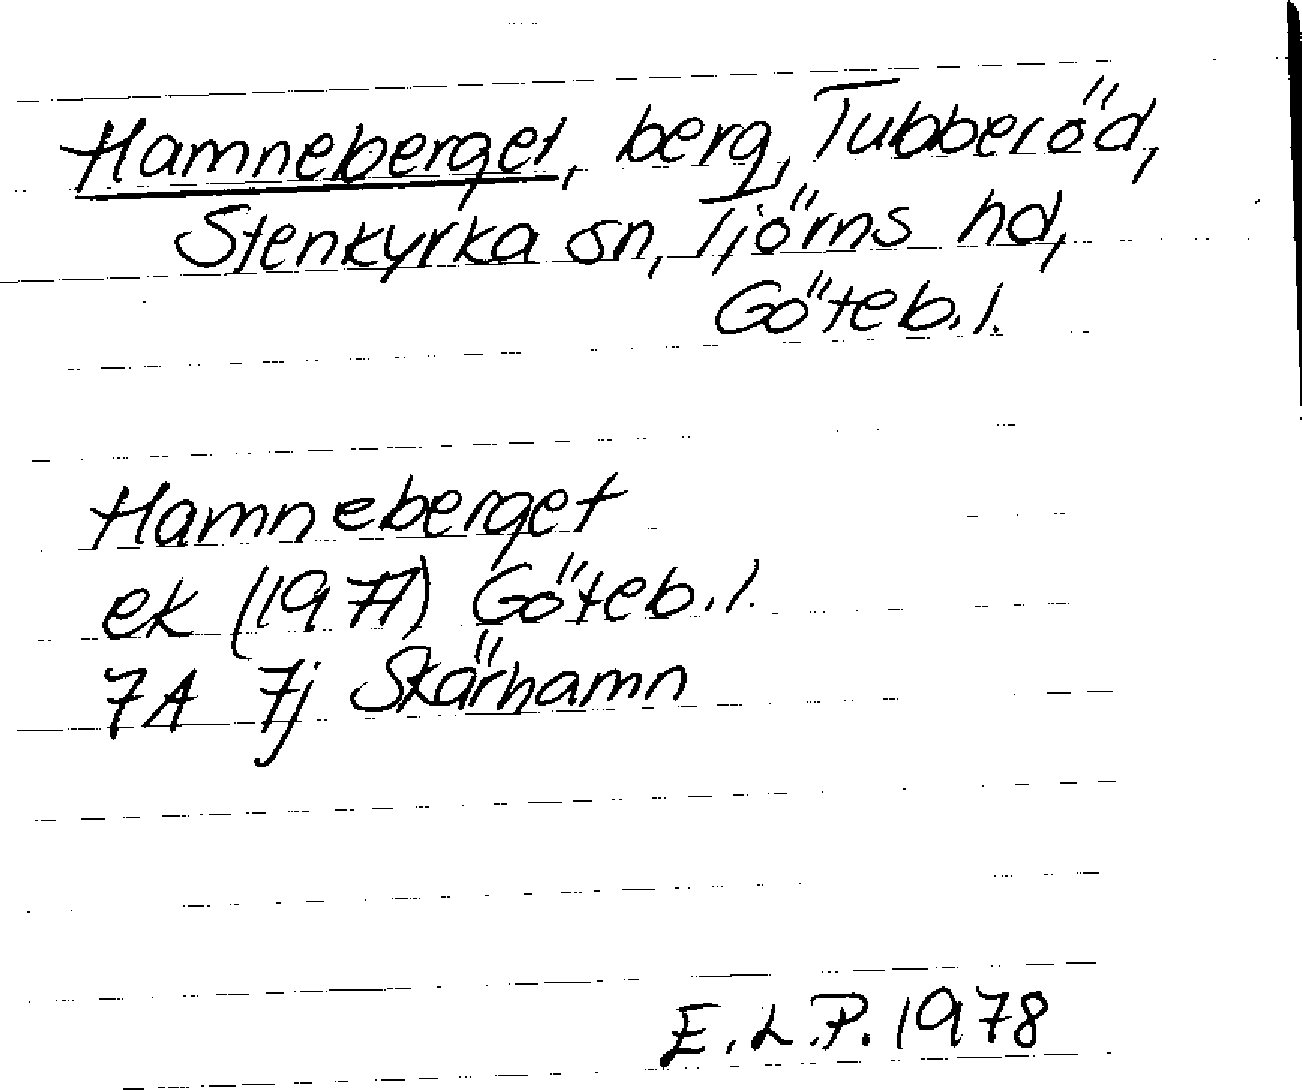 Hamneberget, berg, Tubberöd,
Stenkyrka sn, Tjörns hd,
Göteb. l.
Hamneberget
ek (1977) Göteb. l.
7A 7j Skärhamn
E.L.P. 1978